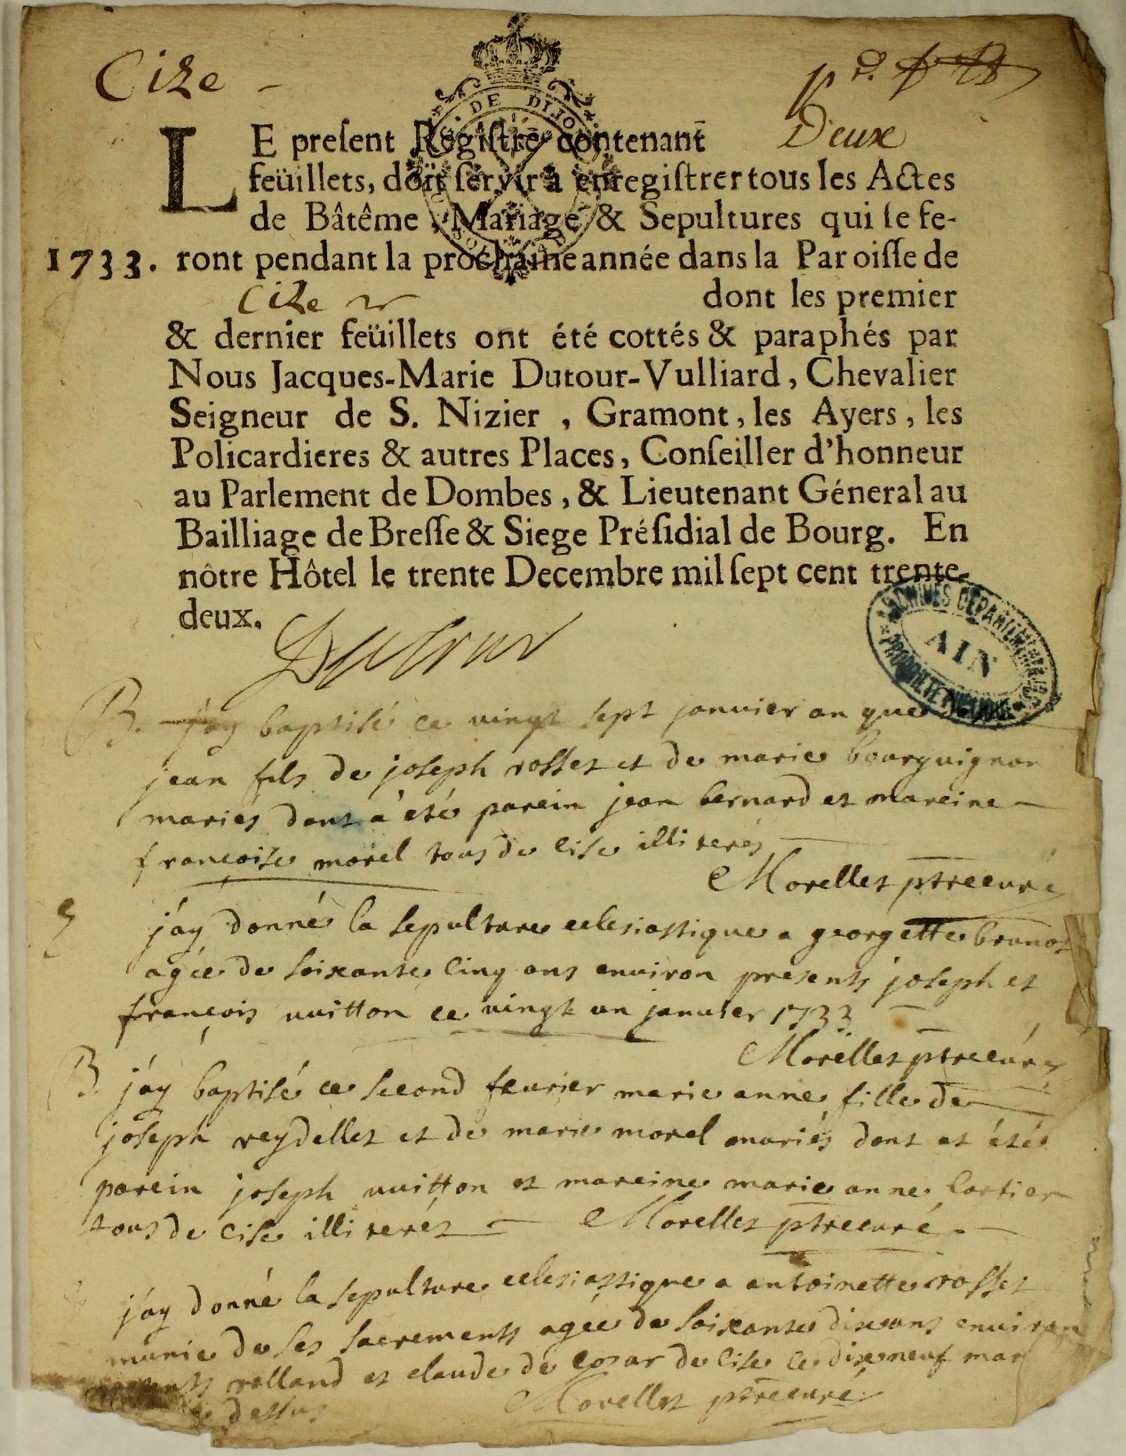 Cize
pr. ft
Deux
LE preſent Regiſtre contenant̄
feüillets, doit ſervir à enregiſtrer tous les Actes
de Bâtême, Mariage & Sepultures qui ſe fe-
1733. ront pendant la prochaine année dans la Paroiſſe de
Cize dont les premier
& dernier feüillets ont été cottés & paraphés par
Nous Jacques-Marie Dutour-Vulliard, Chevalier
Seigneur de S. Nizier, Gramont, les Ayers, les
Policardieres & autres Places, Conſeiller d'honneur
au Parlement de Dombes, & Lieutenant Géneral au
Bailliage de Breſſe & Siege Préſidial de Bourg. En
nôtre Hôtel le trente Decembre mil ſept cent trente-
deux.
Dutour
ARCHIVES DÉPARTEMENTALES AIN PROPRIÉTÉ PUBLIQUE
B. j'ay baptisé ce vingt sept janvier an que
jean fils de joseph rosset et de marie bourguignon
mariés dont à été parein jean bernard et mareine
françoise morel tous de Cise illiterés
Morellet ptre curé
S j'ay donné la sepulture eclesiastique a georgette brunot
agée de soixante cinq ans environ presents joseph et
françois vuitton ce vingt un janvier 1733
Morellet ptre curé
B. j'ay baptisé ce second fevrier marie anne fille de
joseph reydellet et de marie morel mariés dont at été
parein joseph vuitton et mareine marie anne Cartier
tous de Cise illiterés Morellet ptre curé
j'ay donné la sepulture eclesiastique a antoinette rosset
munie de ses sacrements agée de soixante dix ans environ
rolland et claude de de Cise ce dixneuf mar
dessus Morellet ptre curé